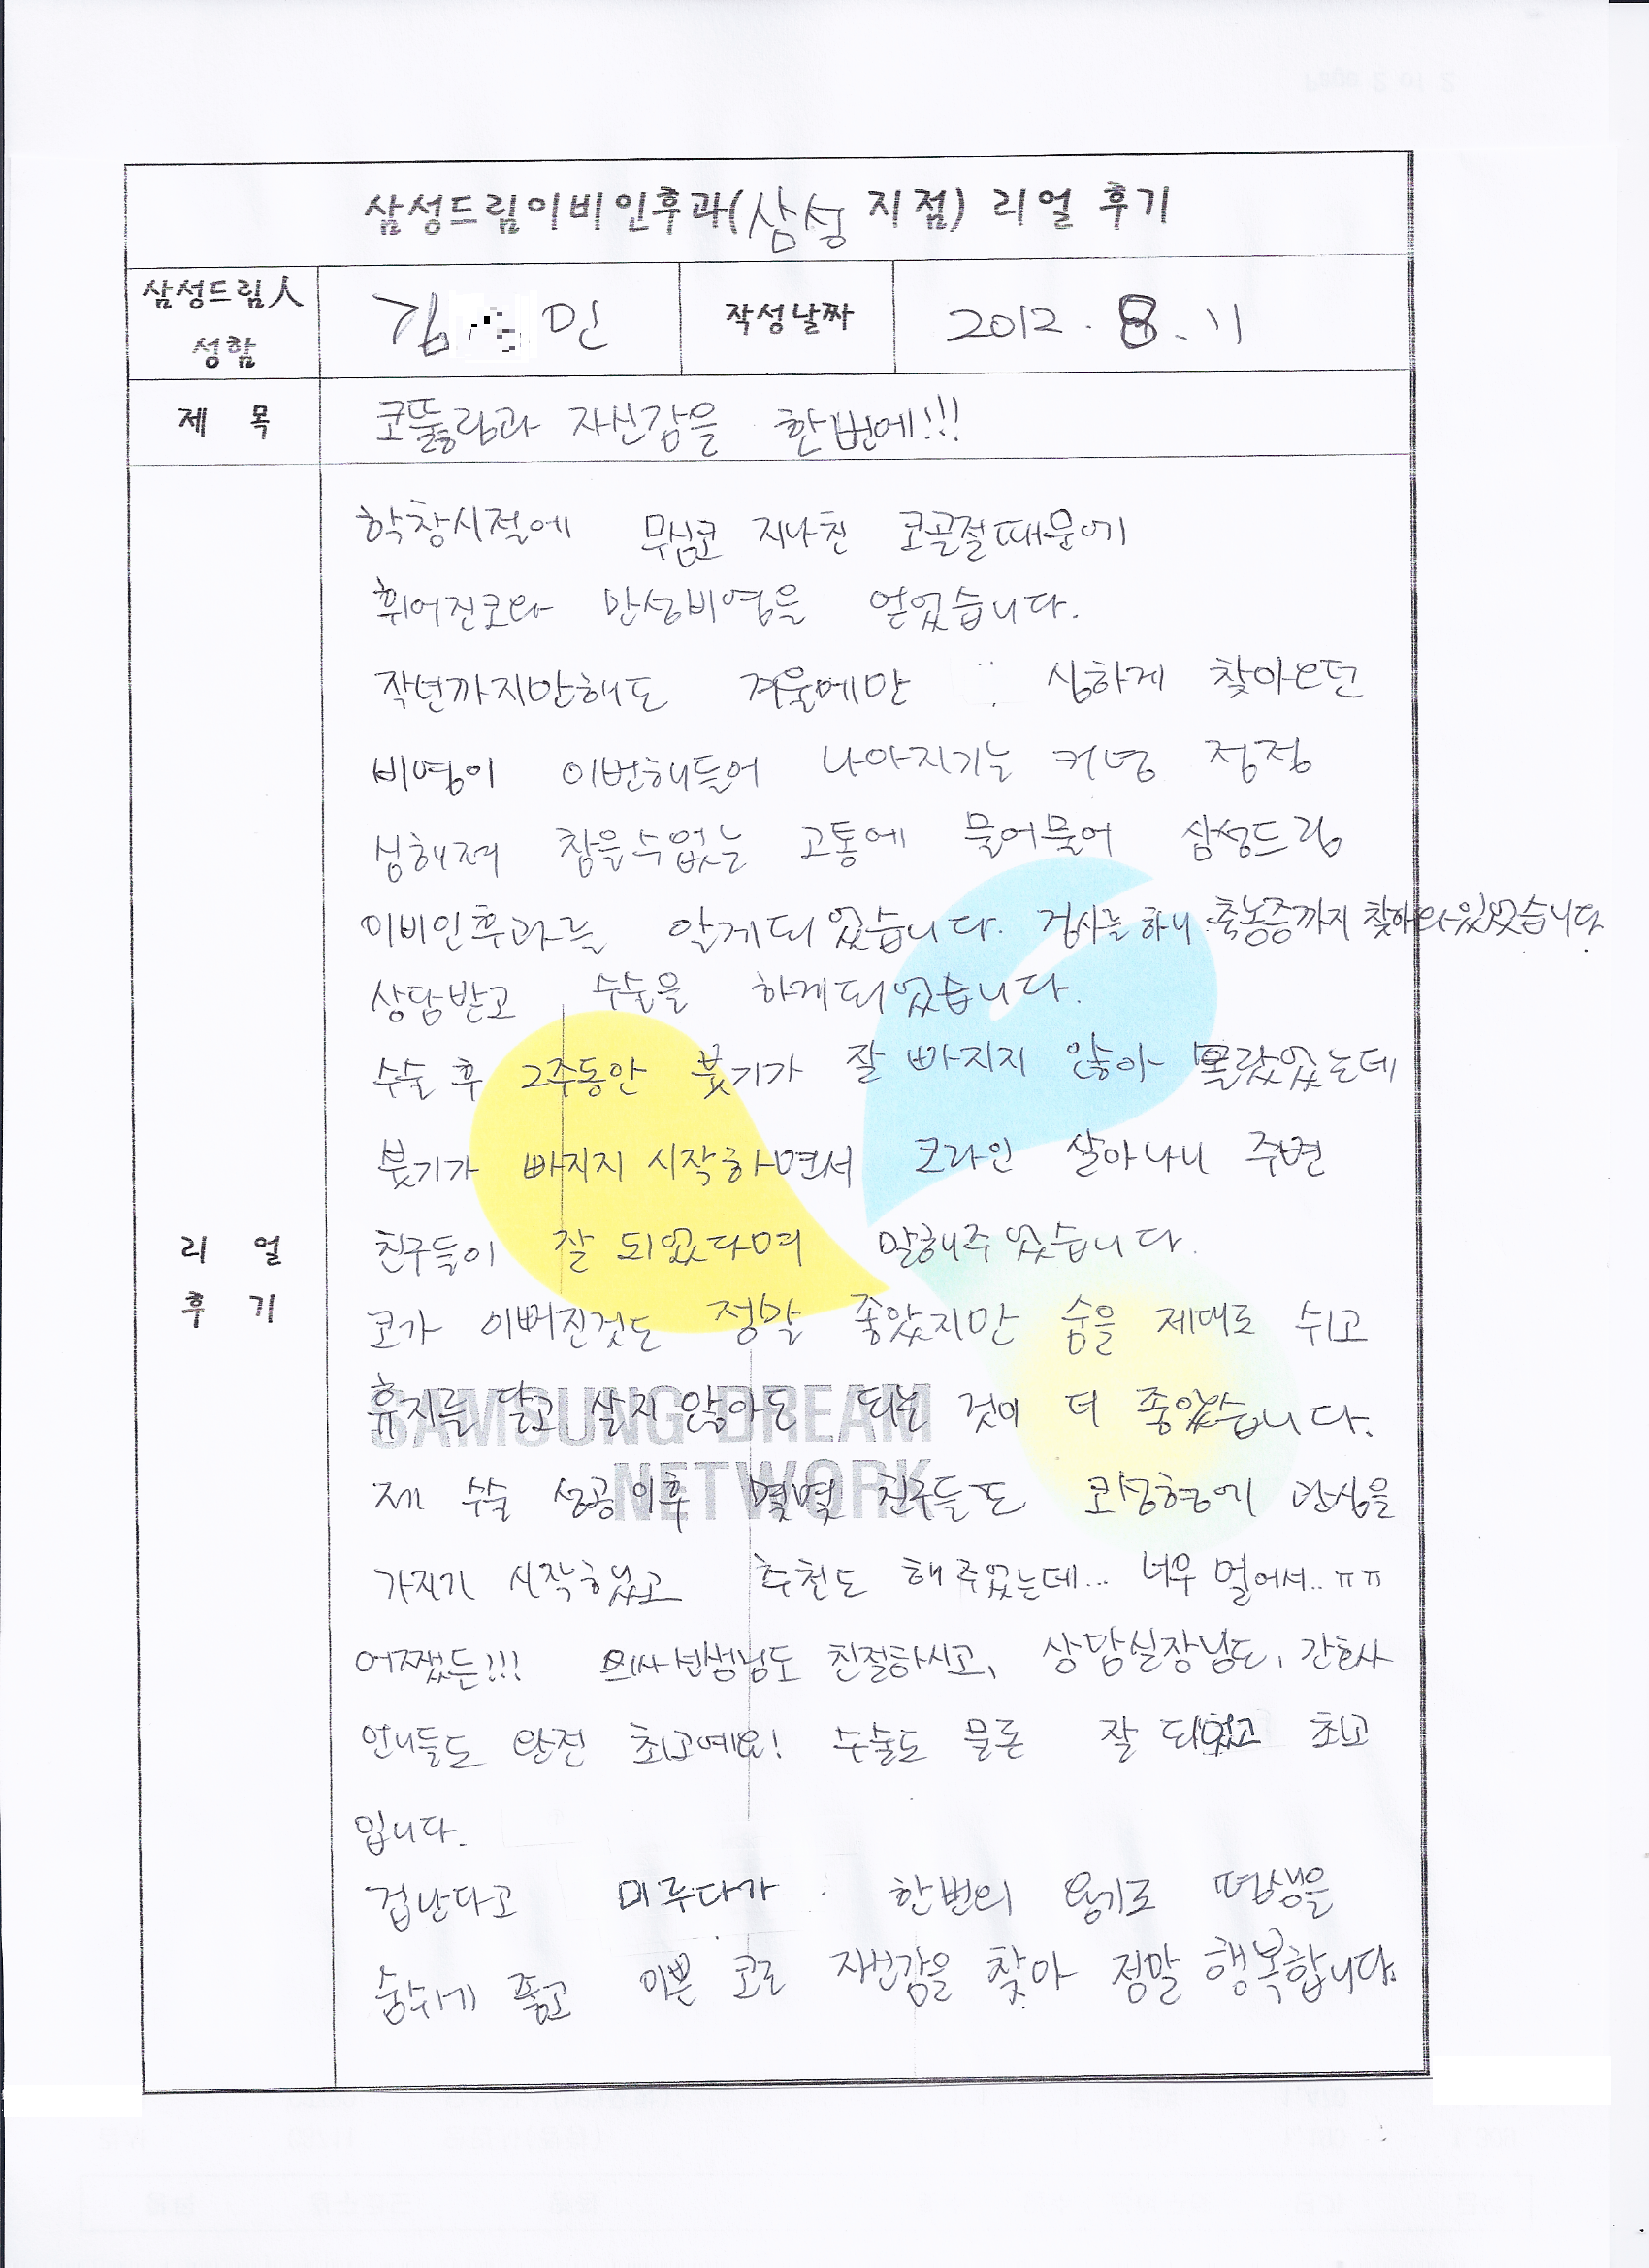 삼성드림이비인후과(삼성 지점) 리얼 후기
삼성드림人
성함
김 민
작성날짜
2012. 8. 11
제 목
코뚫림과 자신감을 한번에!!!
학창시절에 무심코 지나친 코골절때문에
휘어진코와 만성비염을 얻었습니다.
작년까지만해도 겨울에만 심하게 찾아오던
비염이 이번해들어 나아지기는 커녕 점점
심해져 참을수없는 고통에 물어물어 삼성드림
이비인후과를 알게되었습니다. 검사를 하니 축농증까지 찾아와있었습니다
상담받고 수술을 하게되었습니다.
수술 후 2주동안 붓기가 잘 빠지지 않아 몰랐었는데
붓기가 빠지지 시작하면서 코라인 살아나니 주변
친구들이 잘 되었다며 말해주었습니다.
코가 이뻐진것도 정말 좋았지만 숨을 제대로 쉬고
휴지를 달고 살지 않아도 되는 것이 더 좋았습니다.
SAMSUNG DREAM
NETWORK
제 수술 성공이후 몇몇 친구들도 코성형에 관심을
가지기 시작했고 추천도 해주었는데... 너무 멀어서.. ㅠㅠ
리 얼
후 기
어쨌든!!! 의사선생님도 친절하시고, 상담실장님도, 간호사
언니들도 완전 최고예요! 수술도 물론 잘 되었고 최고
입니다.
겁난다고 미루다가 한번의 용기로 평생을
숨쉬게 좋고 이쁜 코로 자신감을 찾아 정말 행복합니다.